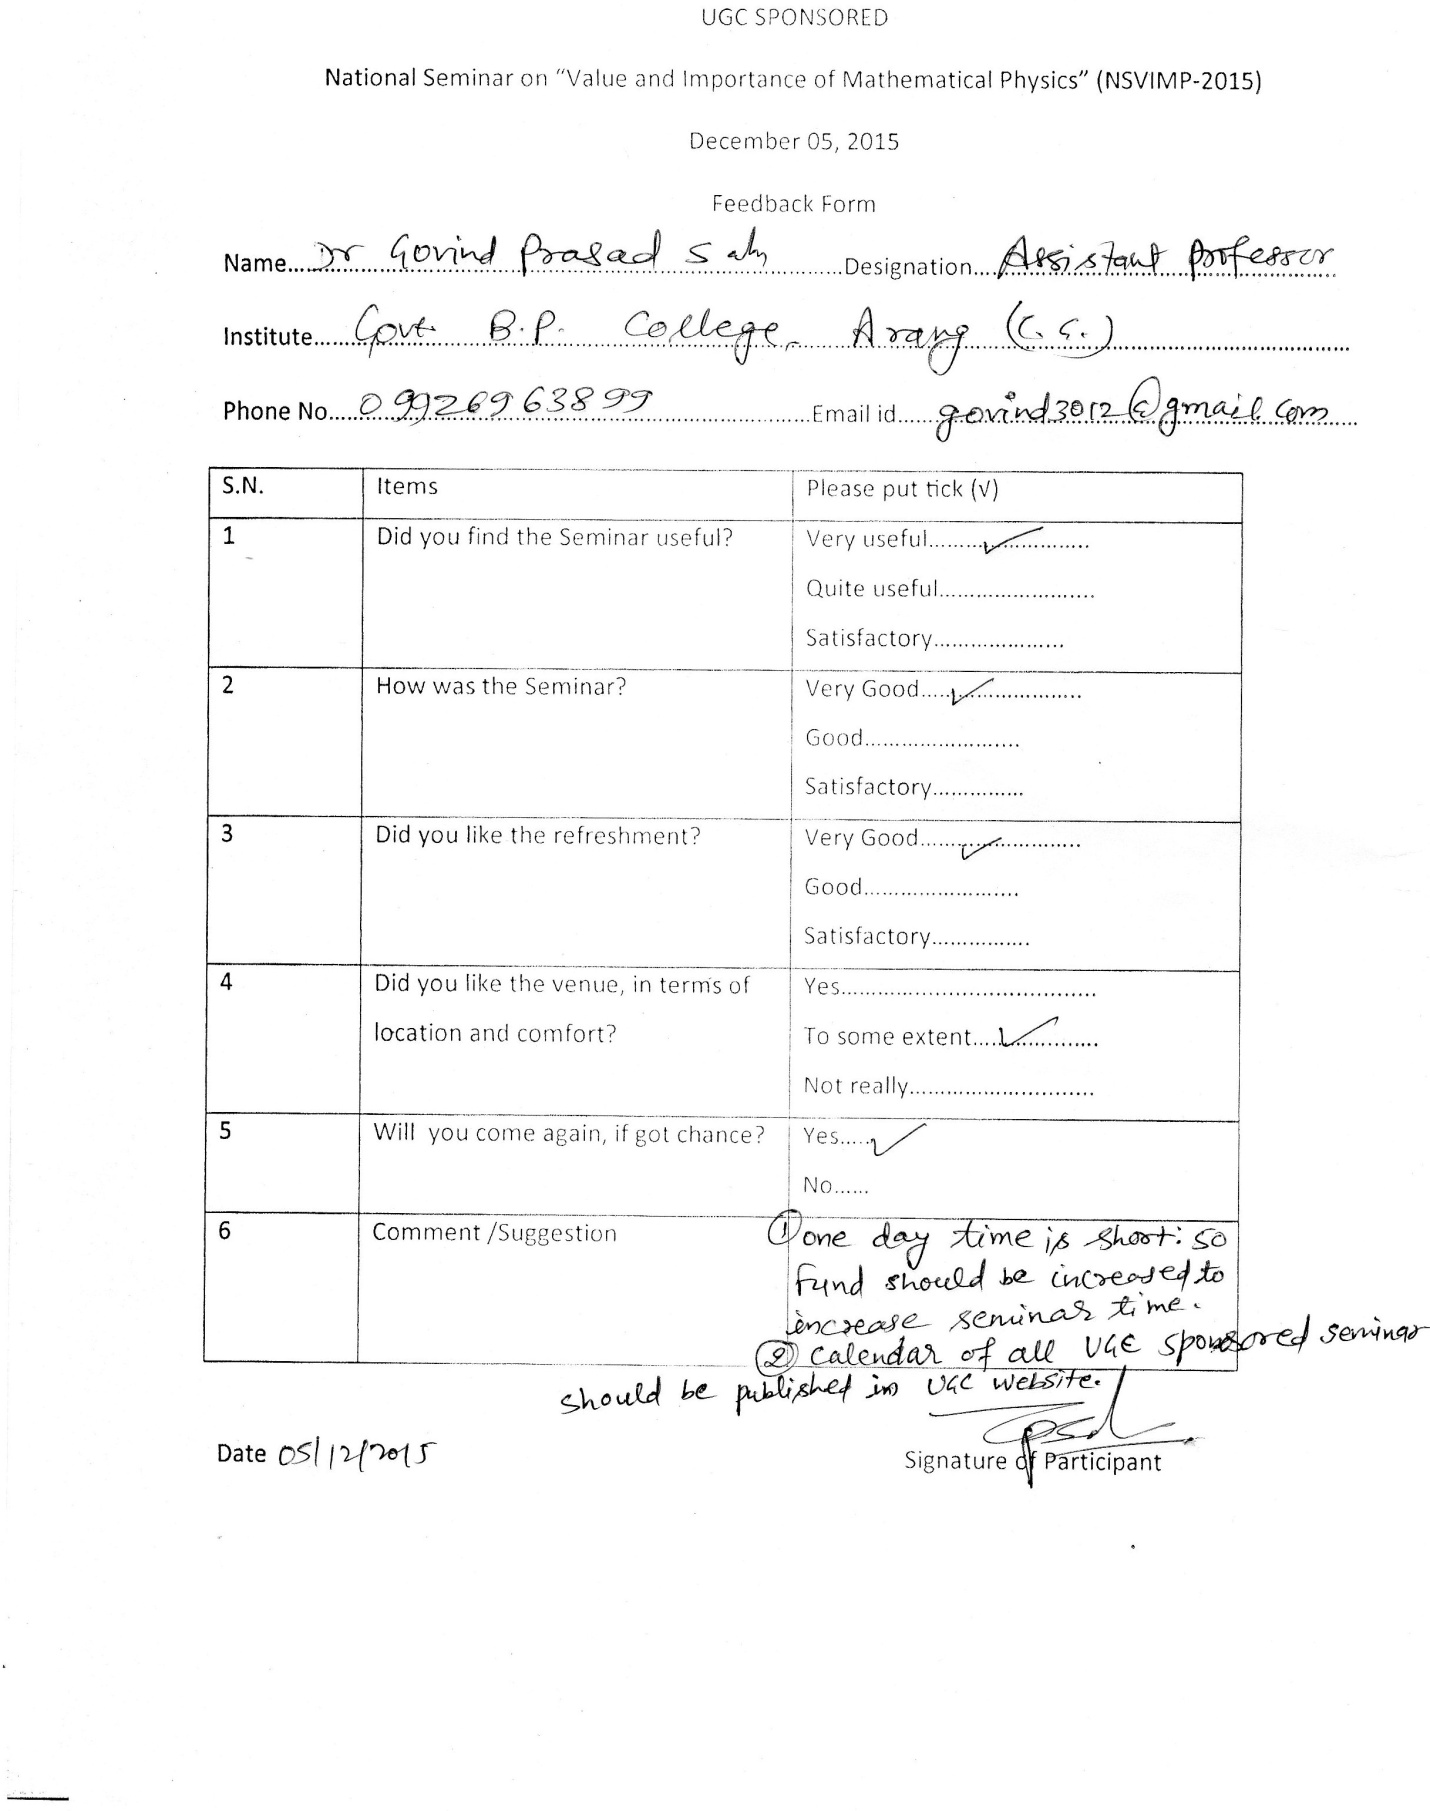 UGC SPONSORED
National Seminar on “Value and Importance of Mathematical Physics” (NSVIMP-2015)
December 05, 2015
Feedback Form
Name...Dr Govind Prasad Sahu...Designation...Assistant professor
Institute...Govt. B.P. College, Arang (C.G.)...
Phone No...09926963899...Email id...govind3012@gmail.com...
S.N. Items Please put tick (√)
1 Did you find the Seminar useful? Very useful...✓...
Quite useful...
Satisfactory...
2 How was the Seminar? Very Good...✓...
Good...
Satisfactory...
3 Did you like the refreshment? Very Good...✓...
Good...
Satisfactory...
4 Did you like the venue, in terms of Yes...
location and comfort? To some extent...✓...
Not really...
5 Will you come again, if got chance? Yes...✓
No......
6 Comment /Suggestion ① one day time is short: so
fund should be increased to
increase seminar time.
② calendar of all UGC sponsored seminar
should be published in UGC website.
Date 05/12/2015
Signature of Participant